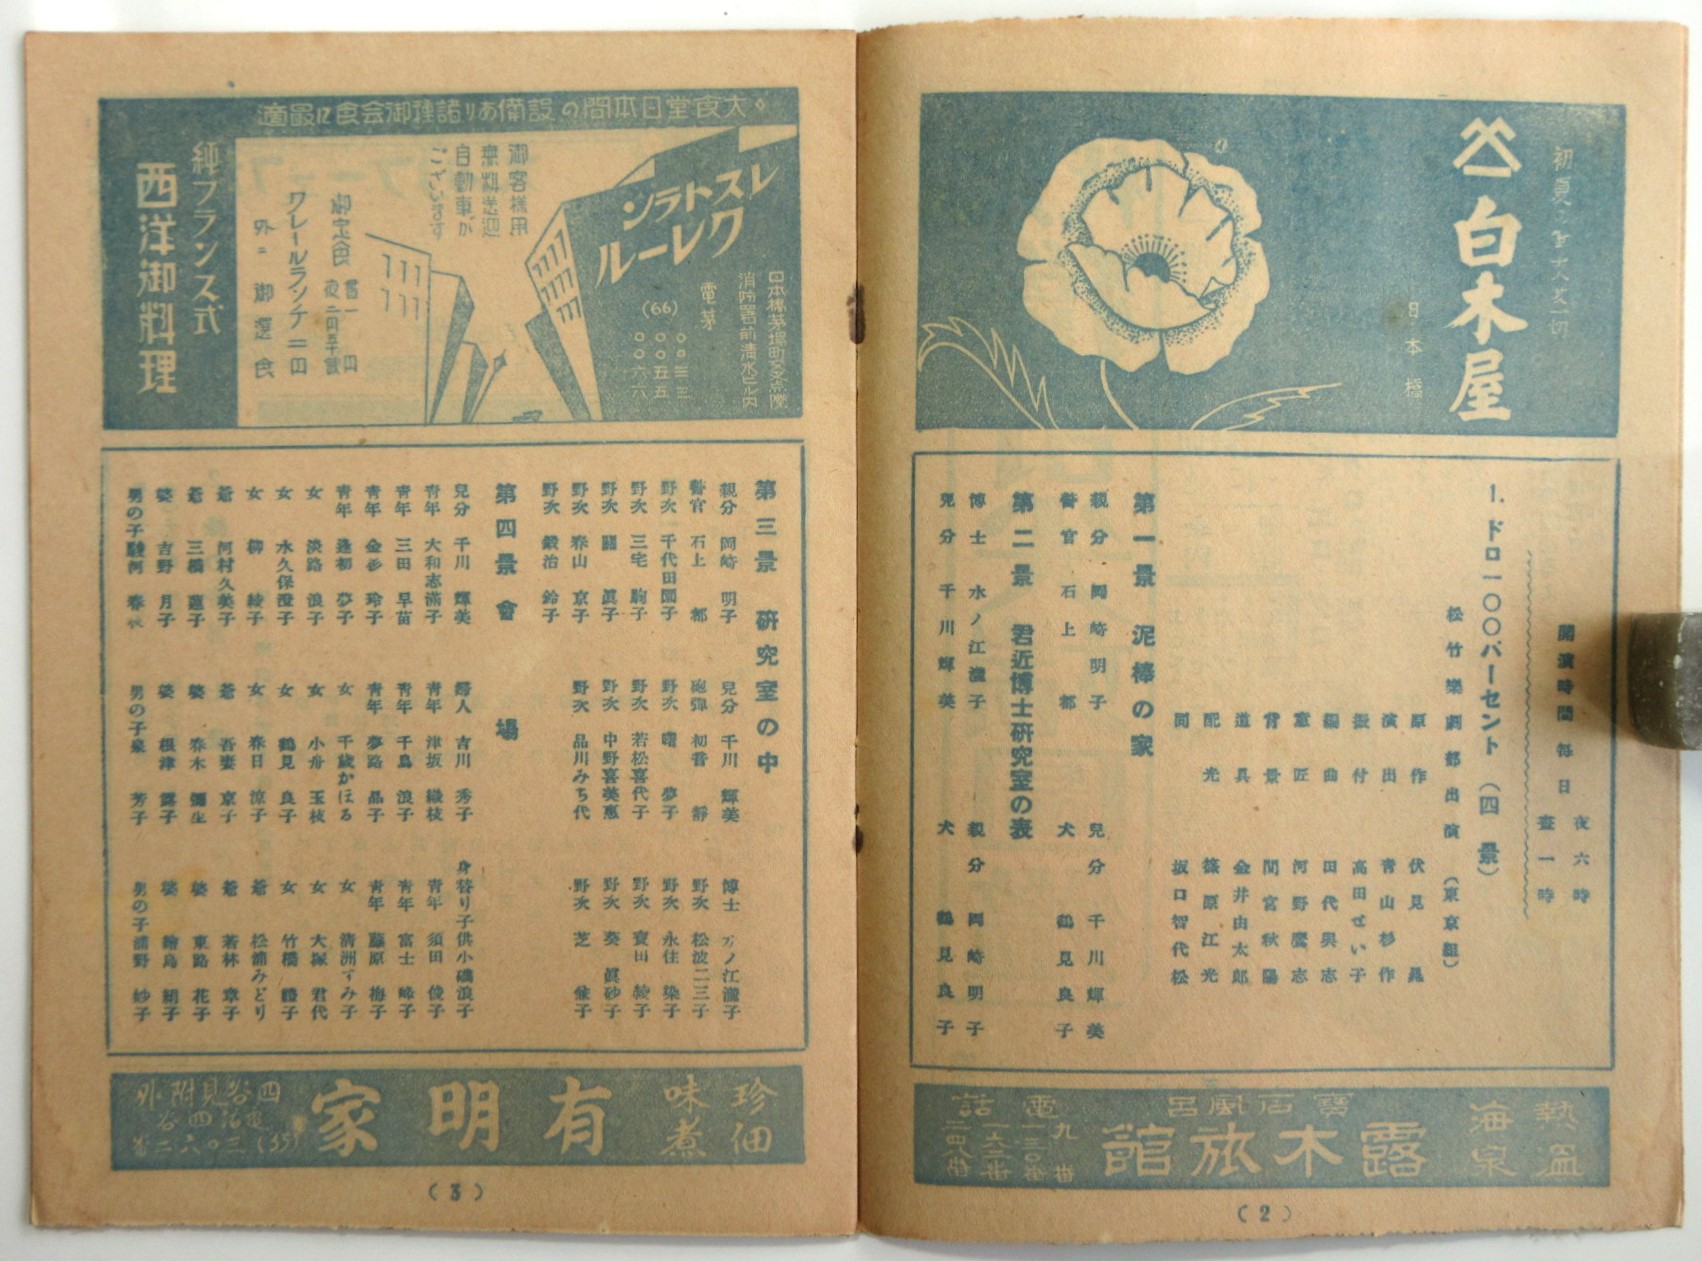 白木屋
日本橋
開演時間每日
夜六時
晝一時
1. ドロ一〇〇パーセント（四景）
松竹樂劇部出演（東京組）
原作 伏見晁
演出 青山杉作
振付 高田せい子
編曲 田代與志
意匠 河野鷹志
背景 間宮秋陽
道具 金井由太郎
配光 篠原江光
同 坂口智代松
第一景 泥棒の家
親分 岡崎明子 兒分 千川輝美
警官 石上都 犬 鶴見良子
第二景 君近博士研究室の表
博士 水ノ江瀧子 親分 岡崎明子
兒分 千川輝美 犬 鶴見良子
熱海
溫泉
寶石風呂
露木旅館
電話
九番
一三〇番
一六二番
二四八番
(2)
大食堂日本間の設備あり諸種御会食に最適
レストラン
クレール
日本橋茅場町交差点際
消防署前清水ビル内
電茅
(66)
〇〇三三
〇〇五五
〇〇六六
御客樣用
無料送迎
自動車が
ございます
御定食 晝一円 夜二円五十銭
クレールランチ一円
外ニ御選食
純フランス式
西洋御料理
第三景 研究室の中
親分 岡崎明子 兒分 千川輝美 博士 水ノ江瀧子
警官 石上都 砲彈 初音靜 野次 松波二三子
野次 千代田園子 野次 曙夢子 野次 永住染子
野次 三宅駒子 野次 若松喜代子 野次 寶田綾子
野次 關眞子 野次 中野喜美惠 野次 葵眞砂子
野次 春山京子 野次 品川みち代 野次 芝
野次 鍛治鈴子
第四景 會場
兒分 千川輝美 婦人 吉川秀子 身替り子供 小磯浪子
靑年 大和志滿子 靑年 津坂織枝 靑年 須田俊子
靑年 三田早苗 靑年 千島浪子 靑年 富士峰子
靑年 金杉玲子 靑年 夢路晶子 靑年 藤原梅子
靑年 逢初夢子 女 千歳かほる 女 清洲すみ子
女 淡路浪子 女 小舟玉枝 女 大塚君代
女 水久保澄子 女 鶴見良子 女 竹橋
女 柳綾子 女 春日涼子 爺 松浦みどり
爺 河村久美子 爺 吾妻京子 爺 若林章子
爺 三橋蓮子 婆 春木彌生 婆 東路花子
婆 吉野月子 婆 根津露子 婆 繪島絹子
男の子 駿河春 男の子 泉芳子 男の子 浦野紗子
珍味
佃煮
有明家
四谷見附外
電話四谷
(35)三〇六二番
(3)